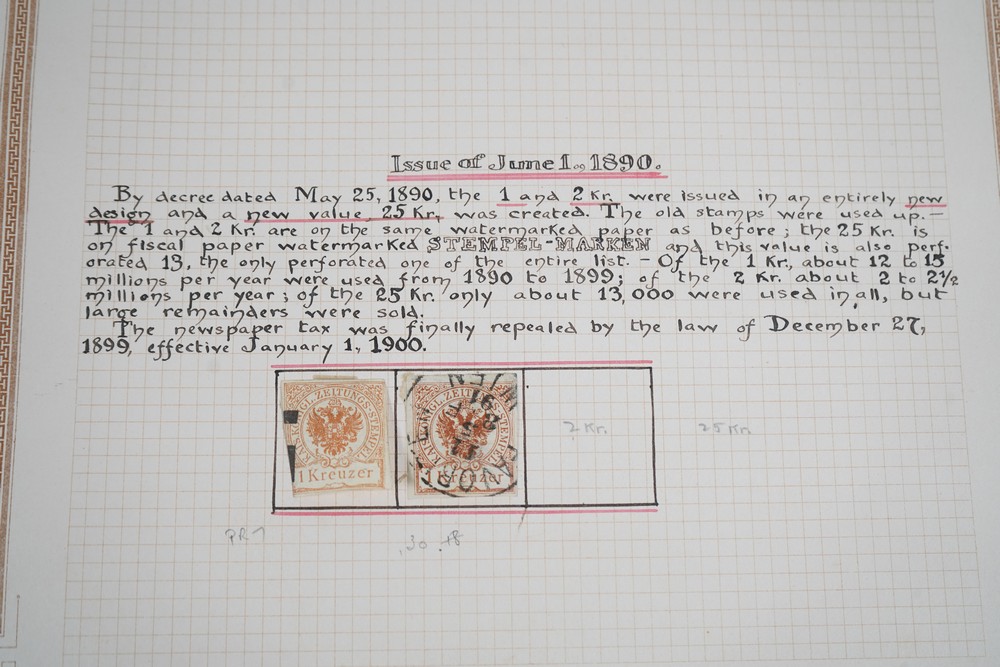 Issue of June 1., 1890.
By decree dated May 25, 1890, the 1 and 2 Kr. were issued in an entirely new
design and a new value, 25 Kr., was created. The old stamps were used up. —
The 1 and 2 Kr. are on the same watermarked paper as before; the 25 Kr. is
on fiscal paper watermarked STEMPEL-MARKEN and this value is also perf-
orated 13, the only perforated one of the entire list. — Of the 1 Kr., about 12 to 15
millions per year were used from 1890 to 1899; of the 2 Kr. about 2 to 2½
millions per year; of the 25 Kr. only about 13,000 were used in all, but
large remainders were sold.
The newspaper tax was finally repealed by the law of December 27,
1899, effective January 1, 1900.
KAIS. KÖNIGL. ZEITUNGS-STEMPEL
1 Kreuzer
KAIS. KÖNIGL. ZEITUNGS-STEMPEL
1 Kreuzer
WIEN
91
2 Kr.
25 Kr.
PR7
.30